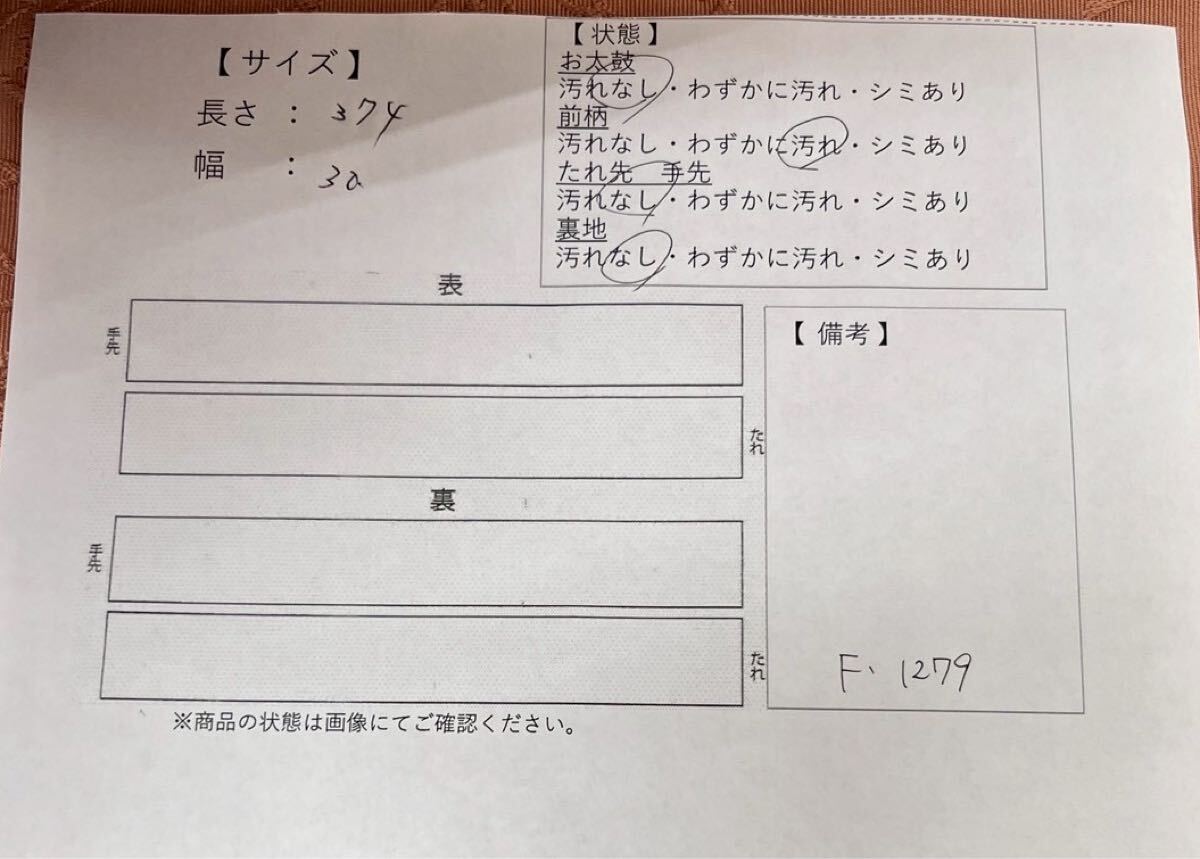 【サイズ】
長さ : 374
幅 : 30
【状態】
お太鼓
汚れなし・わずかに汚れ・シミあり
前柄
汚れなし・わずかに汚れ・シミあり
たれ先 手先
汚れなし・わずかに汚れ・シミあり
裏地
汚れなし・わずかに汚れ・シミあり
表
手先
たれ
裏
手先
たれ
【備考】
F. 1279
※商品の状態は画像にてご確認ください。